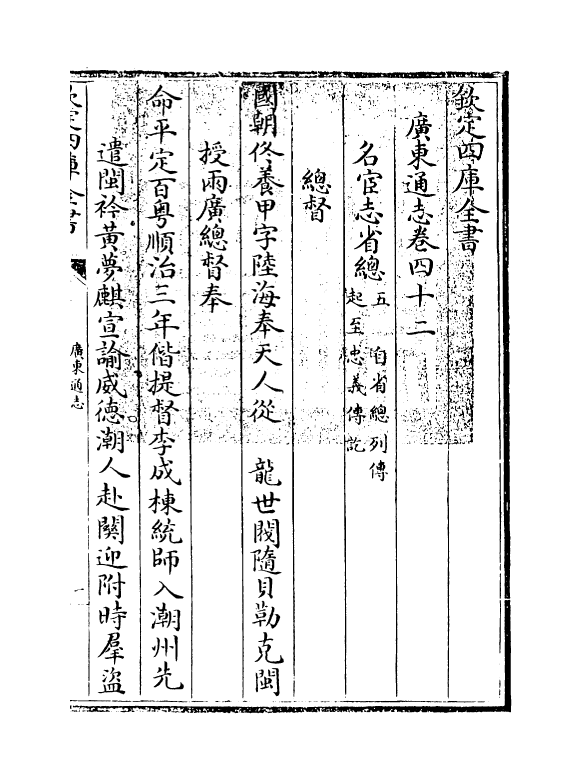 欽定四庫全書
廣東通志卷四十二
名宦志省總五 自省總列傳起至忠義傳訖
總督
國朝佟養甲字陸海奉天人從 龍世閥隨貝勒克閩
授兩廣總督奉
命平定百粵順治三年偕提督李成棟統師入潮州先
遣閩衿黃夢麒宣諭威德潮人赴闕迎附時羣盜
欽定四庫全書
廣東通志
一